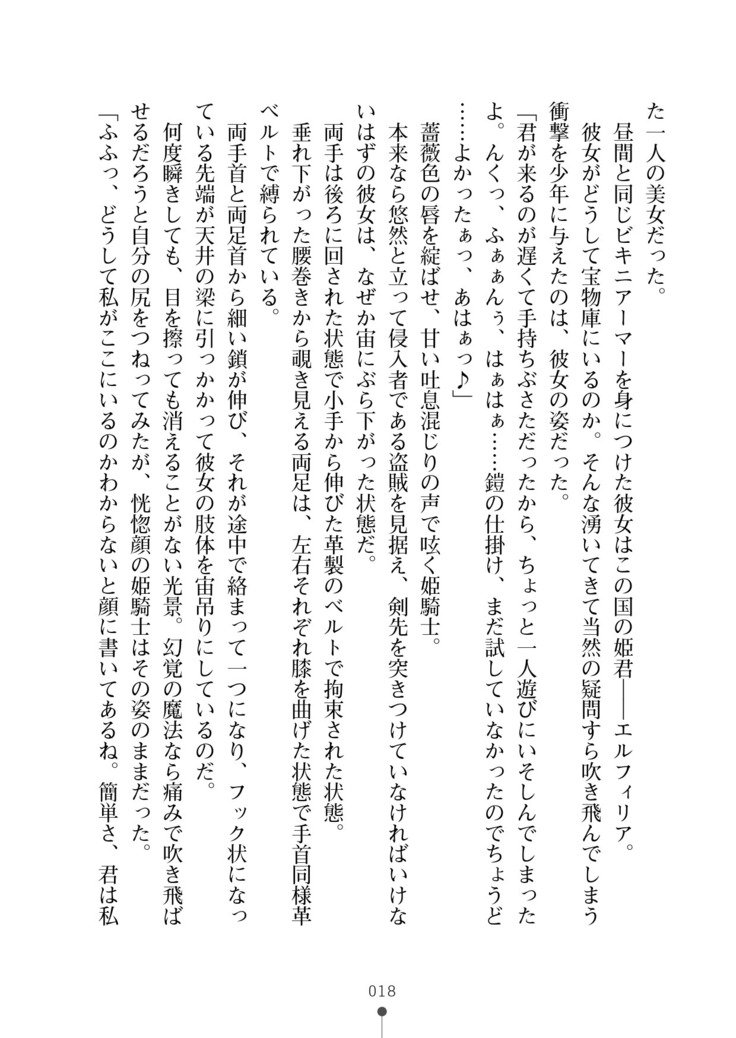 た一人の美女だった。
昼間と同じビキニアーマーを身につけた彼女はこの国の姫君――エルフィリア。
彼女がどうして宝物庫にいるのか。そんな湧いてきて当然の疑問すら吹き飛んでしまう
衝撃を少年に与えたのは、彼女の姿だった。
「君が来るのが遅くて手持ちぶさただったから、ちょっと一人遊びにいそしんでしまった
よ。んくっ、ふぁぁんぅ、はぁはぁ……鎧の仕掛け、まだ試していなかったのでちょうど
……よかったぁっ、あはぁっ♪」
薔薇色の唇を綻ばせ、甘い吐息混じりの声で呟く姫騎士。
本来なら悠然と立って侵入者である盗賊を見据え、剣先を突きつけていなければいけな
いはずの彼女は、なぜか宙にぶら下がった状態だ。
両手は後ろに回された状態で小手から伸びた革製のベルトで拘束された状態。
垂れ下がった腰巻きから覗き見える両足は、左右それぞれ膝を曲げた状態で手首同様革
ベルトで縛られている。
両手首と両足首から細い鎖が伸び、それが途中で絡まって一つになり、フック状になっ
ている先端が天井の梁に引っかかって彼女の肢体を宙吊りにしているのだ。
何度瞬きしても、目を擦っても消えることがない光景。幻覚の魔法なら痛みで吹き飛ば
せるだろうと自分の尻をつねってみたが、恍惚顔の姫騎士はその姿のままだった。
「ふふっ、どうして私がここにいるのかわからないと顔に書いてあるね。簡単さ、君は私
018